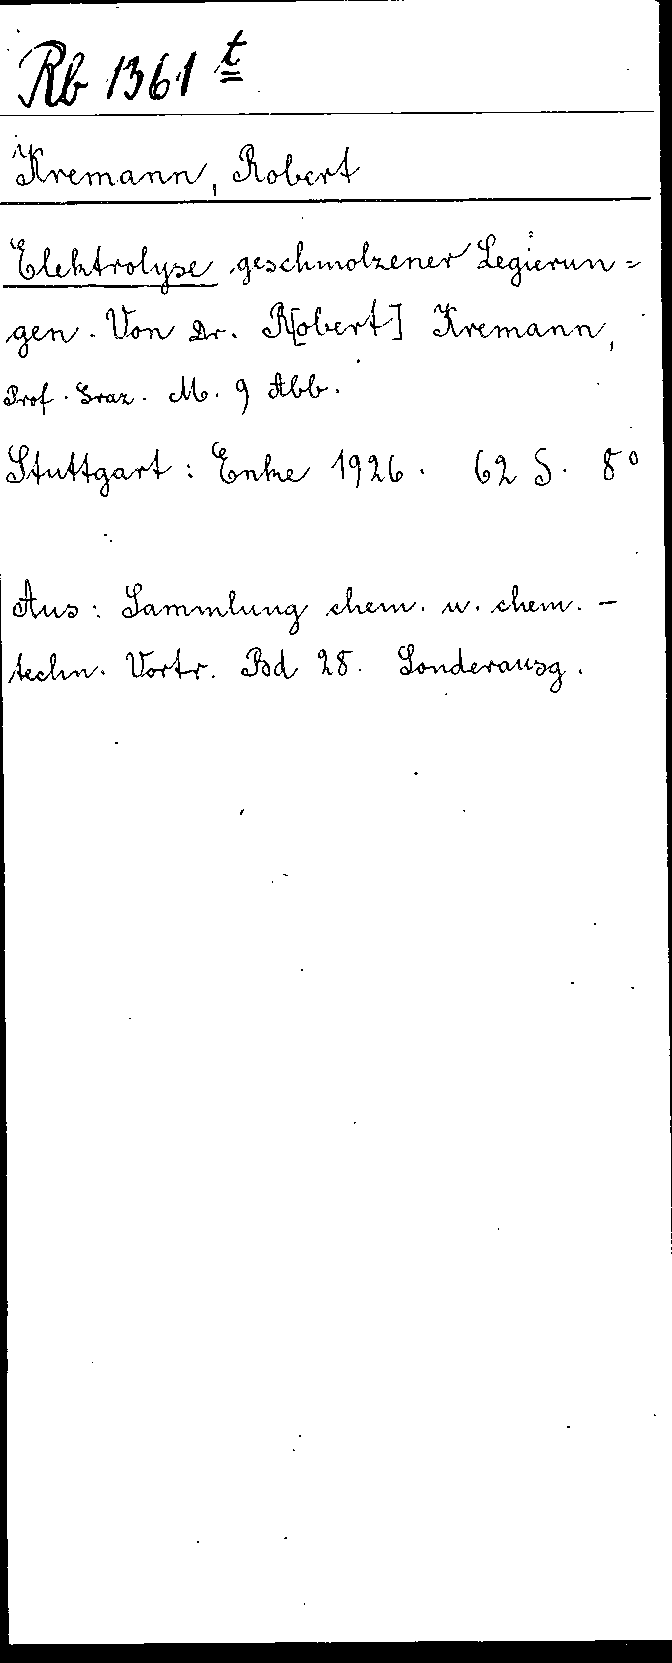 Rb 1361 t
Kremann, Robert
Elektrolyse geschmolzener Legierun=
gen. Von Dr. R[obert] Kremann,
Prof. Graz. M. 9 Abb.
Stuttgart: Enke 1926. 62 S. 8°
Aus: Sammlung chem. u. chem.-
techn. Vortr. Bd 28. Sonderausg.